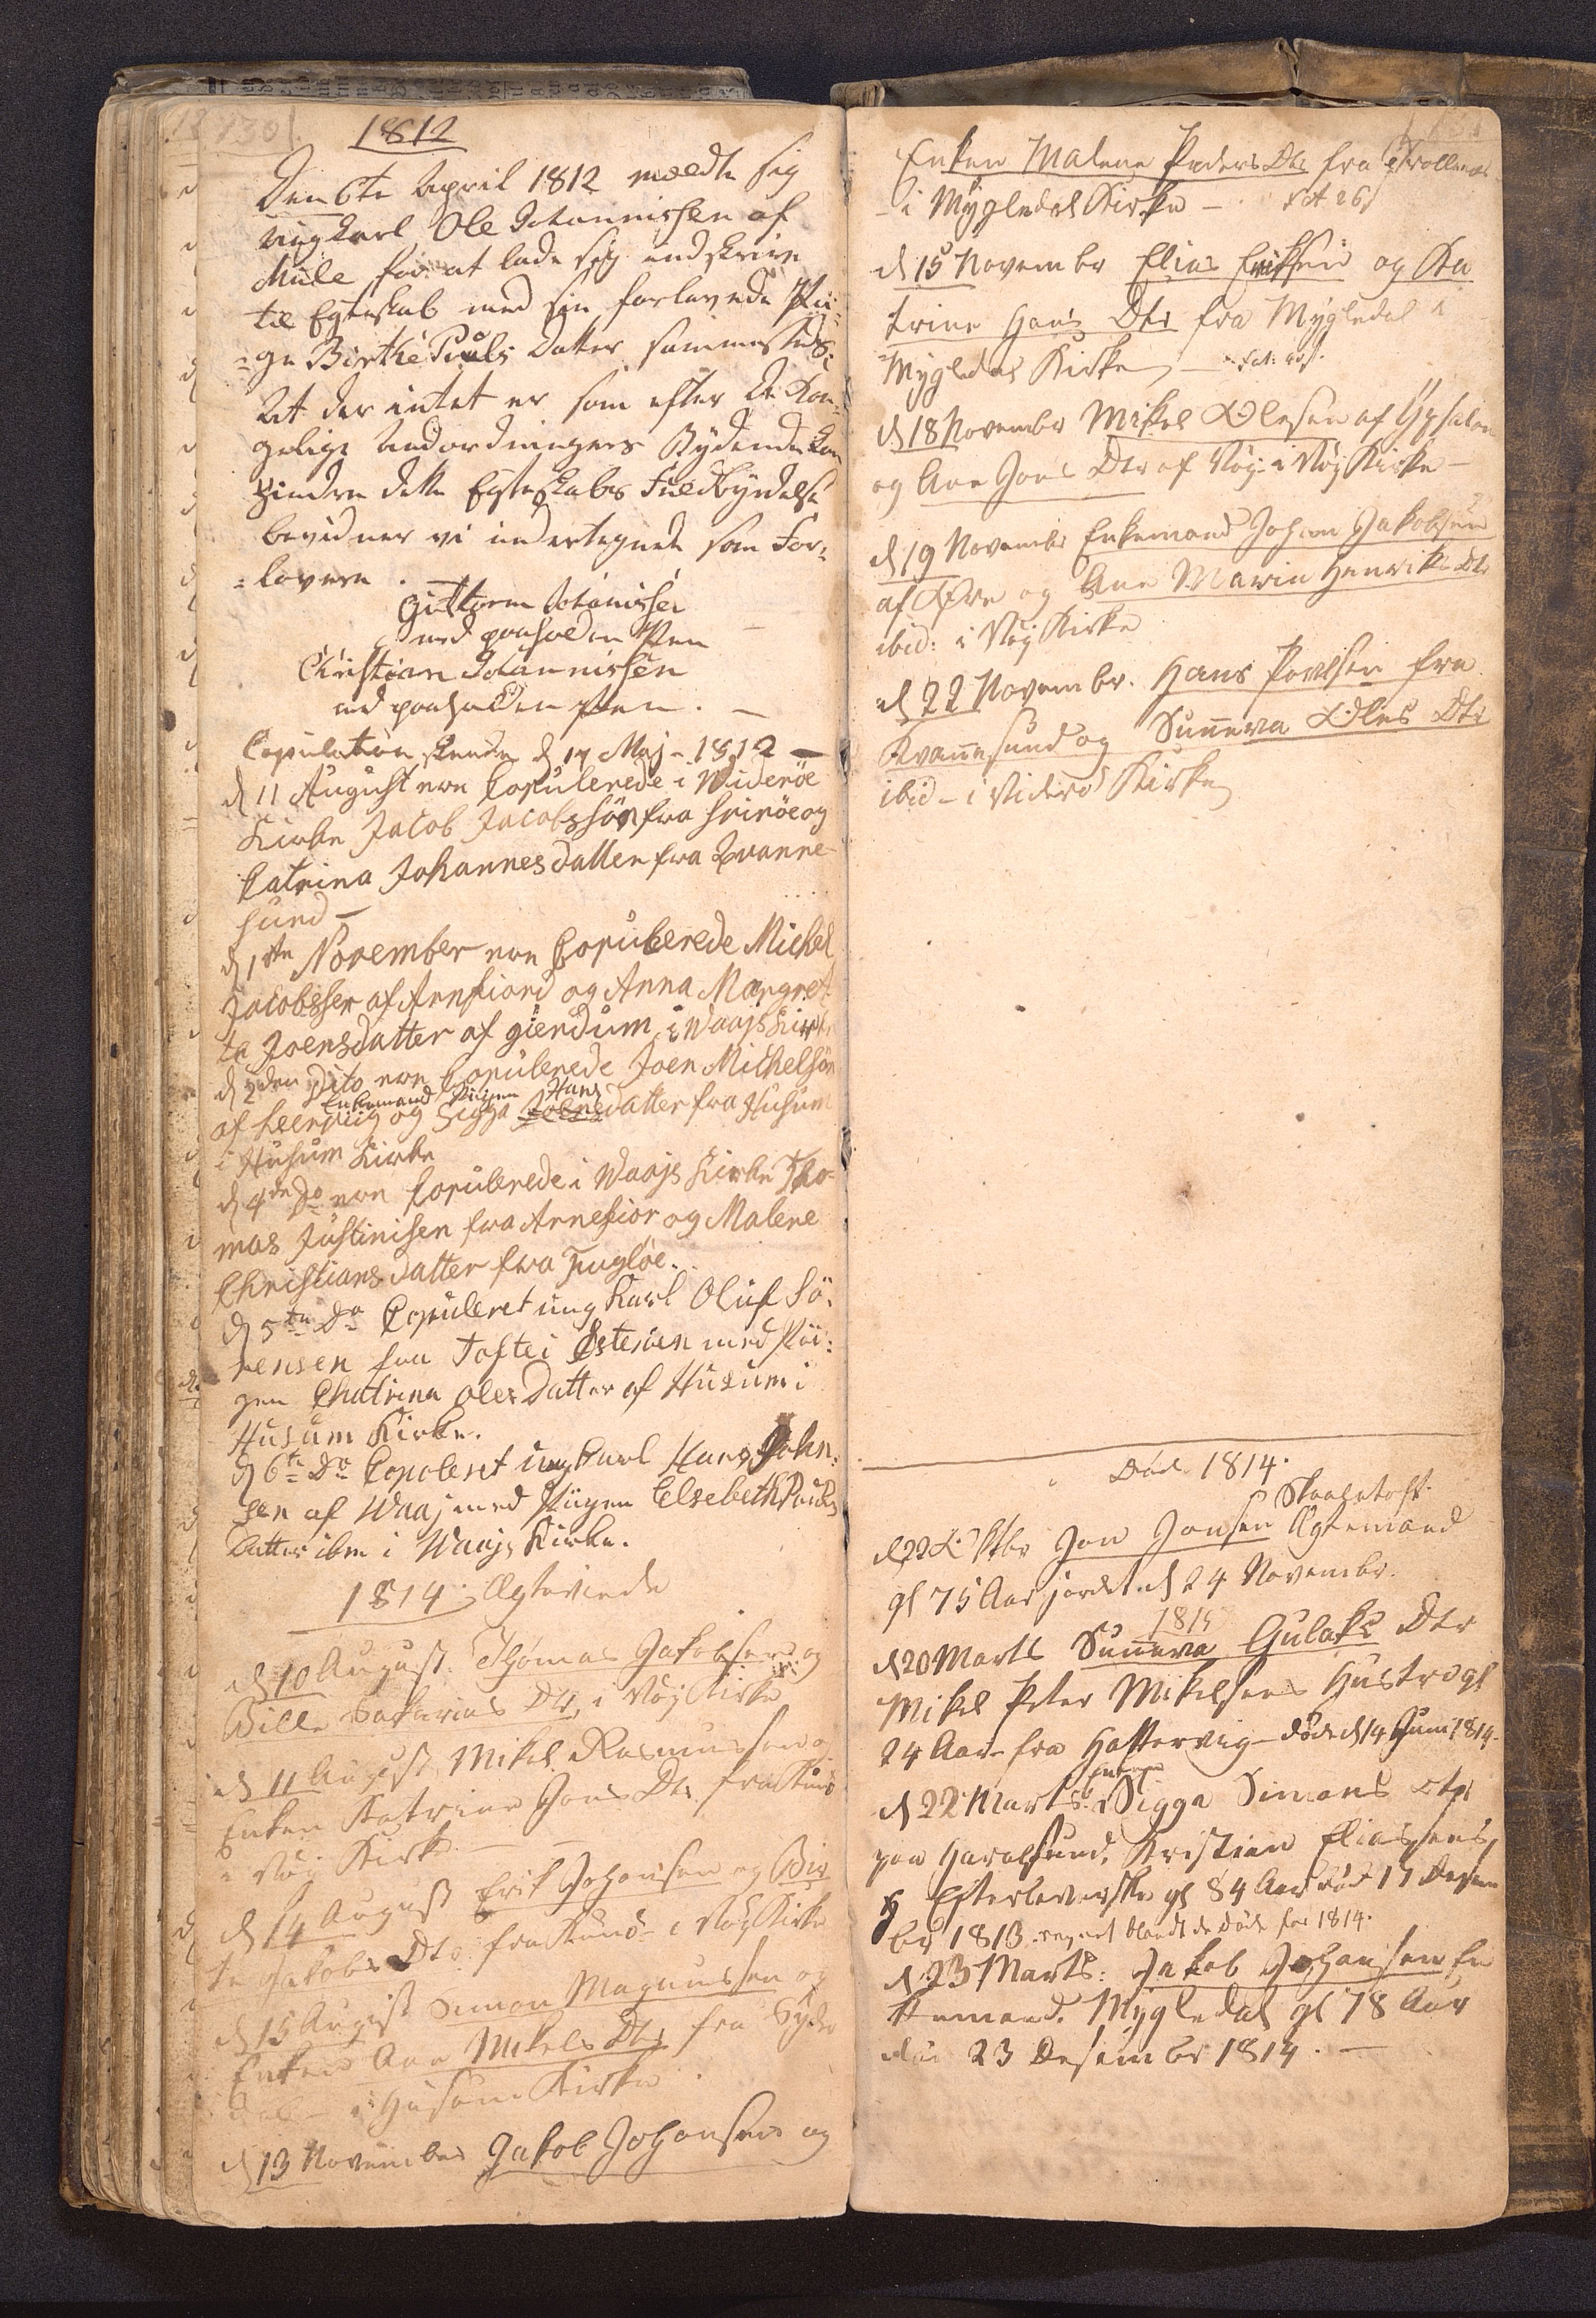 1812
Den 6te April 1812 meldte sig
ungkarl Ole Johannissen af
Mule for at lade sig indskrive
til Egteskab med sin forlovede Pii-
ge Birthe Pouls Datter sammesteds;
At der intet er som efter De Kon-
gelige Anordningers Bydende kan
hindre dette Egteskabs Fuldbyrdelse
bevidner vi undertegnede som For-
lovere.
Guttorm Johanissen
med paaholden Pen
Christian Johannissen
med paaholden Pen.
Copulation skeede d 17 Maj - 1812
d 11 August ere Copulerede i Wideröe
Kirke Jacob Jacobssön fra Svinöe og
Catrina Johannesdatter fra Qvanne-
sund
d 1ste November ere Copulerede Michel
Jacobssen af Arnfiord og Anna Margret-
te Joensdatter af gierdum, i Waajs Kirke
d 2den Dito ere Copulerede Joen Michelsön
Enkemand Pigen Hans
af Leerviig og Sigga Joensdatter fra Husum
i Husum Kirke
d 4de Do ere Copulerede i Waajs Kirke Tho-
mas Justinisen fra Arnefior og Malene
Christiansdatter fra Fugløe.
d 5te Do Copuleret ungkarl Oluf Sö-
rensen fra Tofte i Østeröen med Pii-
gen Chatrina Oles Datter af Husum i
Husum Kirke.
d 6te Do Copuleret ungkarl Hans John-
sen af Waaj med Piigen Elsebeth Pouls
Datter ibm i Waajs Kirke.
1814. Ægteviede
d 10 August. Thomas Jakobsen og
Bille Sakarias Dtr, i Vøj Kirke
d 11 August Mikel Rasmussen og
Enken Katrine Jons Dtr. fra Kunø
i Vøj Kirke
d 14 August Erik Johansen og Bir
te Jakobs Dtr. fra Kunø i Vøj Kirke
d 15 August Simon Magnussen og
Enken Ane Mikels Dtr fra Syder
dal i Husum Kirke
d 13 November Jakob Johansen og
Enken Malene Peders Dtr fra Trollenæs
i Mygledal Kirke
d 15 November Elias Eriksen og Ka
trine Hans Dtr fra Mygledal i
Mygledal Kirke
d 18 November Mikel Olesen af
og Ane Jons Dtr af Vøj i Vøj Kirke
d 19 November Enkemand Johan Jakobsen
af Øre og Ane Marie Henriks Dtr
ibid: i Vøj Kirke
d 22 November. Hans Povlsen fra
Kvannesund og Sunneva Oles Dtr
ibid - i Viderø Kirke
Døde 1814.
Skaaletoft
d 22 Oktbr Jon Jonsen Ægtemand
gl 75 Aar jordet d 24 Novembr.
1815
d 20 Marts Sunneva Gulaks Dtr
Mikel Peter Mikelsens Hustro gl
24 Aar fra Hattervig - døde d 14 Juni 1814.
Enken
d 22 Marts. Sigga Simons Dtr
paa Haraldsund, Kristian Eliassens
Efterleverske gl 84 Aar død 17 Desem
br 1813. regnet blandt de døde for 1814.
d 23 Marts: Jakob Johansen En
kemand. Mygledal gl 78 Aar
død 23 Desember 1814.